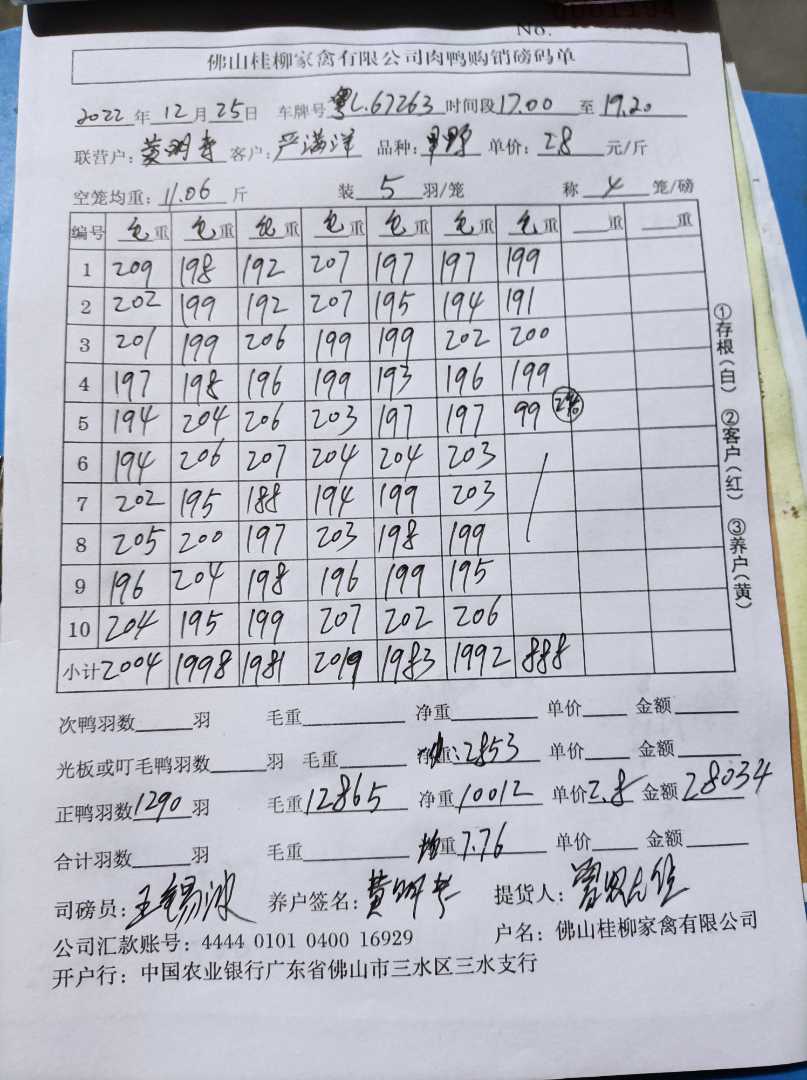 No. 0001194
佛山桂柳家禽有限公司肉鸭购销磅码单
2022年12月25日 车牌号粤L.67263时间段17.00至19.20
联营户:黄明孝 客户:严满洋 品种:甲野 单价:2.8元/斤
空笼均重:11.06斤 装5羽/笼 称4笼/磅
编号 毛重 毛重 毛重 毛重 毛重 毛重 毛重 重 重
1 209 198 192 207 197 197 199
2 202 199 192 207 195 194 191
3 201 199 206 199 199 202 200
4 197 198 196 199 193 196 199
5 194 204 206 203 197 197 99 2笼
6 194 206 207 204 204 203
7 202 195 188 194 199 203
8 205 200 197 203 198 199
9 196 204 198 196 199 195
10 204 195 199 207 202 206
小计 2004 1998 1981 2019 1983 1992 888
①存根(白) ②客户(红) ③养户(黄)
次鸭羽数 羽 毛重 净重 单价 金额
光板或叮毛鸭羽数 羽 毛重 :2853 单价 金额
正鸭羽数1290羽 毛重12865 净重10012 单价2.8 金额28034
合计羽数 羽 毛重 均重7.76 单价 金额
司磅员:王锡冰 养户签名:黄明孝 提货人:
公司汇款账号:4444 0101 0400 16929 户名:佛山桂柳家禽有限公司
开户行:中国农业银行广东省佛山市三水区三水支行